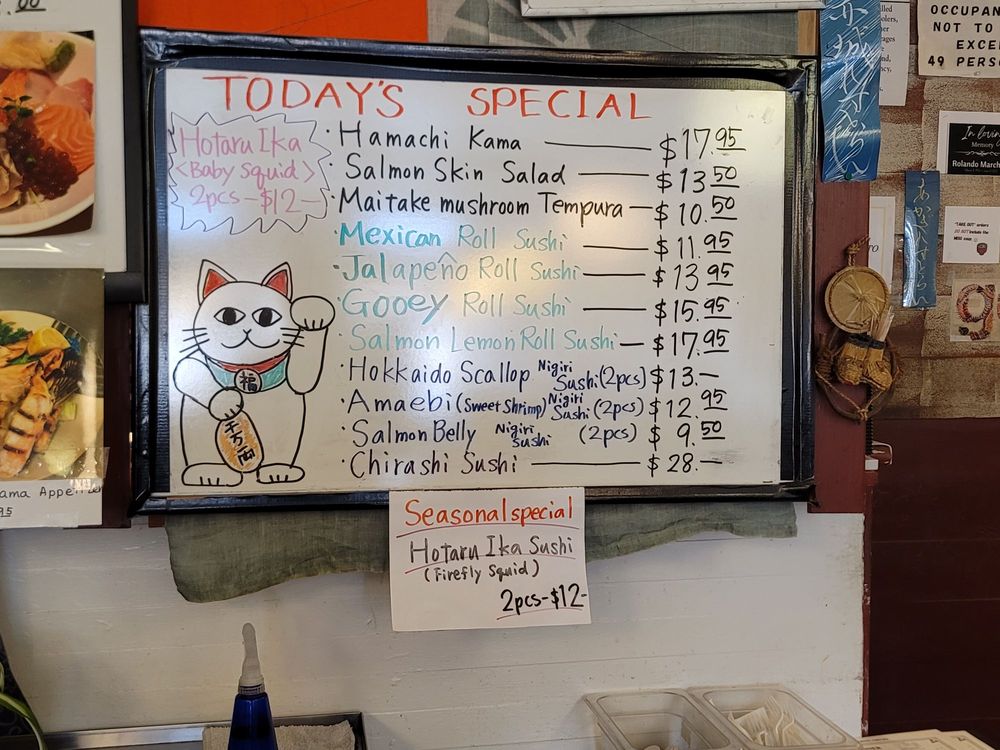 .00
TODAY'S SPECIAL
Hotaru Ika
<Baby Squid>
2pcs-$12-
· Hamachi Kama — $17.95
· Salmon Skin Salad — $13.50
· Maitake mushroom Tempura — $10.50
· Mexican Roll Sushi — $11.95
· Jalapeño Roll Sushi — $13.95
· Gooey Roll Sushi — $15.95
· Salmon Lemon Roll Sushi — $17.95
· Hokkaido Scallop Nigiri Sushi (2pcs) $13.—
· Amaebi (Sweet Shrimp) Nigiri Sushi (2pcs) $12.95
· Salmon Belly Nigiri Sushi (2pcs) $9.50
· Chirashi Sushi — $28.—
福
千万両
Seasonal special
Hotaru Ika Sushi
(Firefly Squid)
2pcs-$12-
ama Appetizer
95
OCCUPAN
NOT TO
EXCE
49 PERSO
In loving
Memory
Rolando March
"TAKE OUT" orders